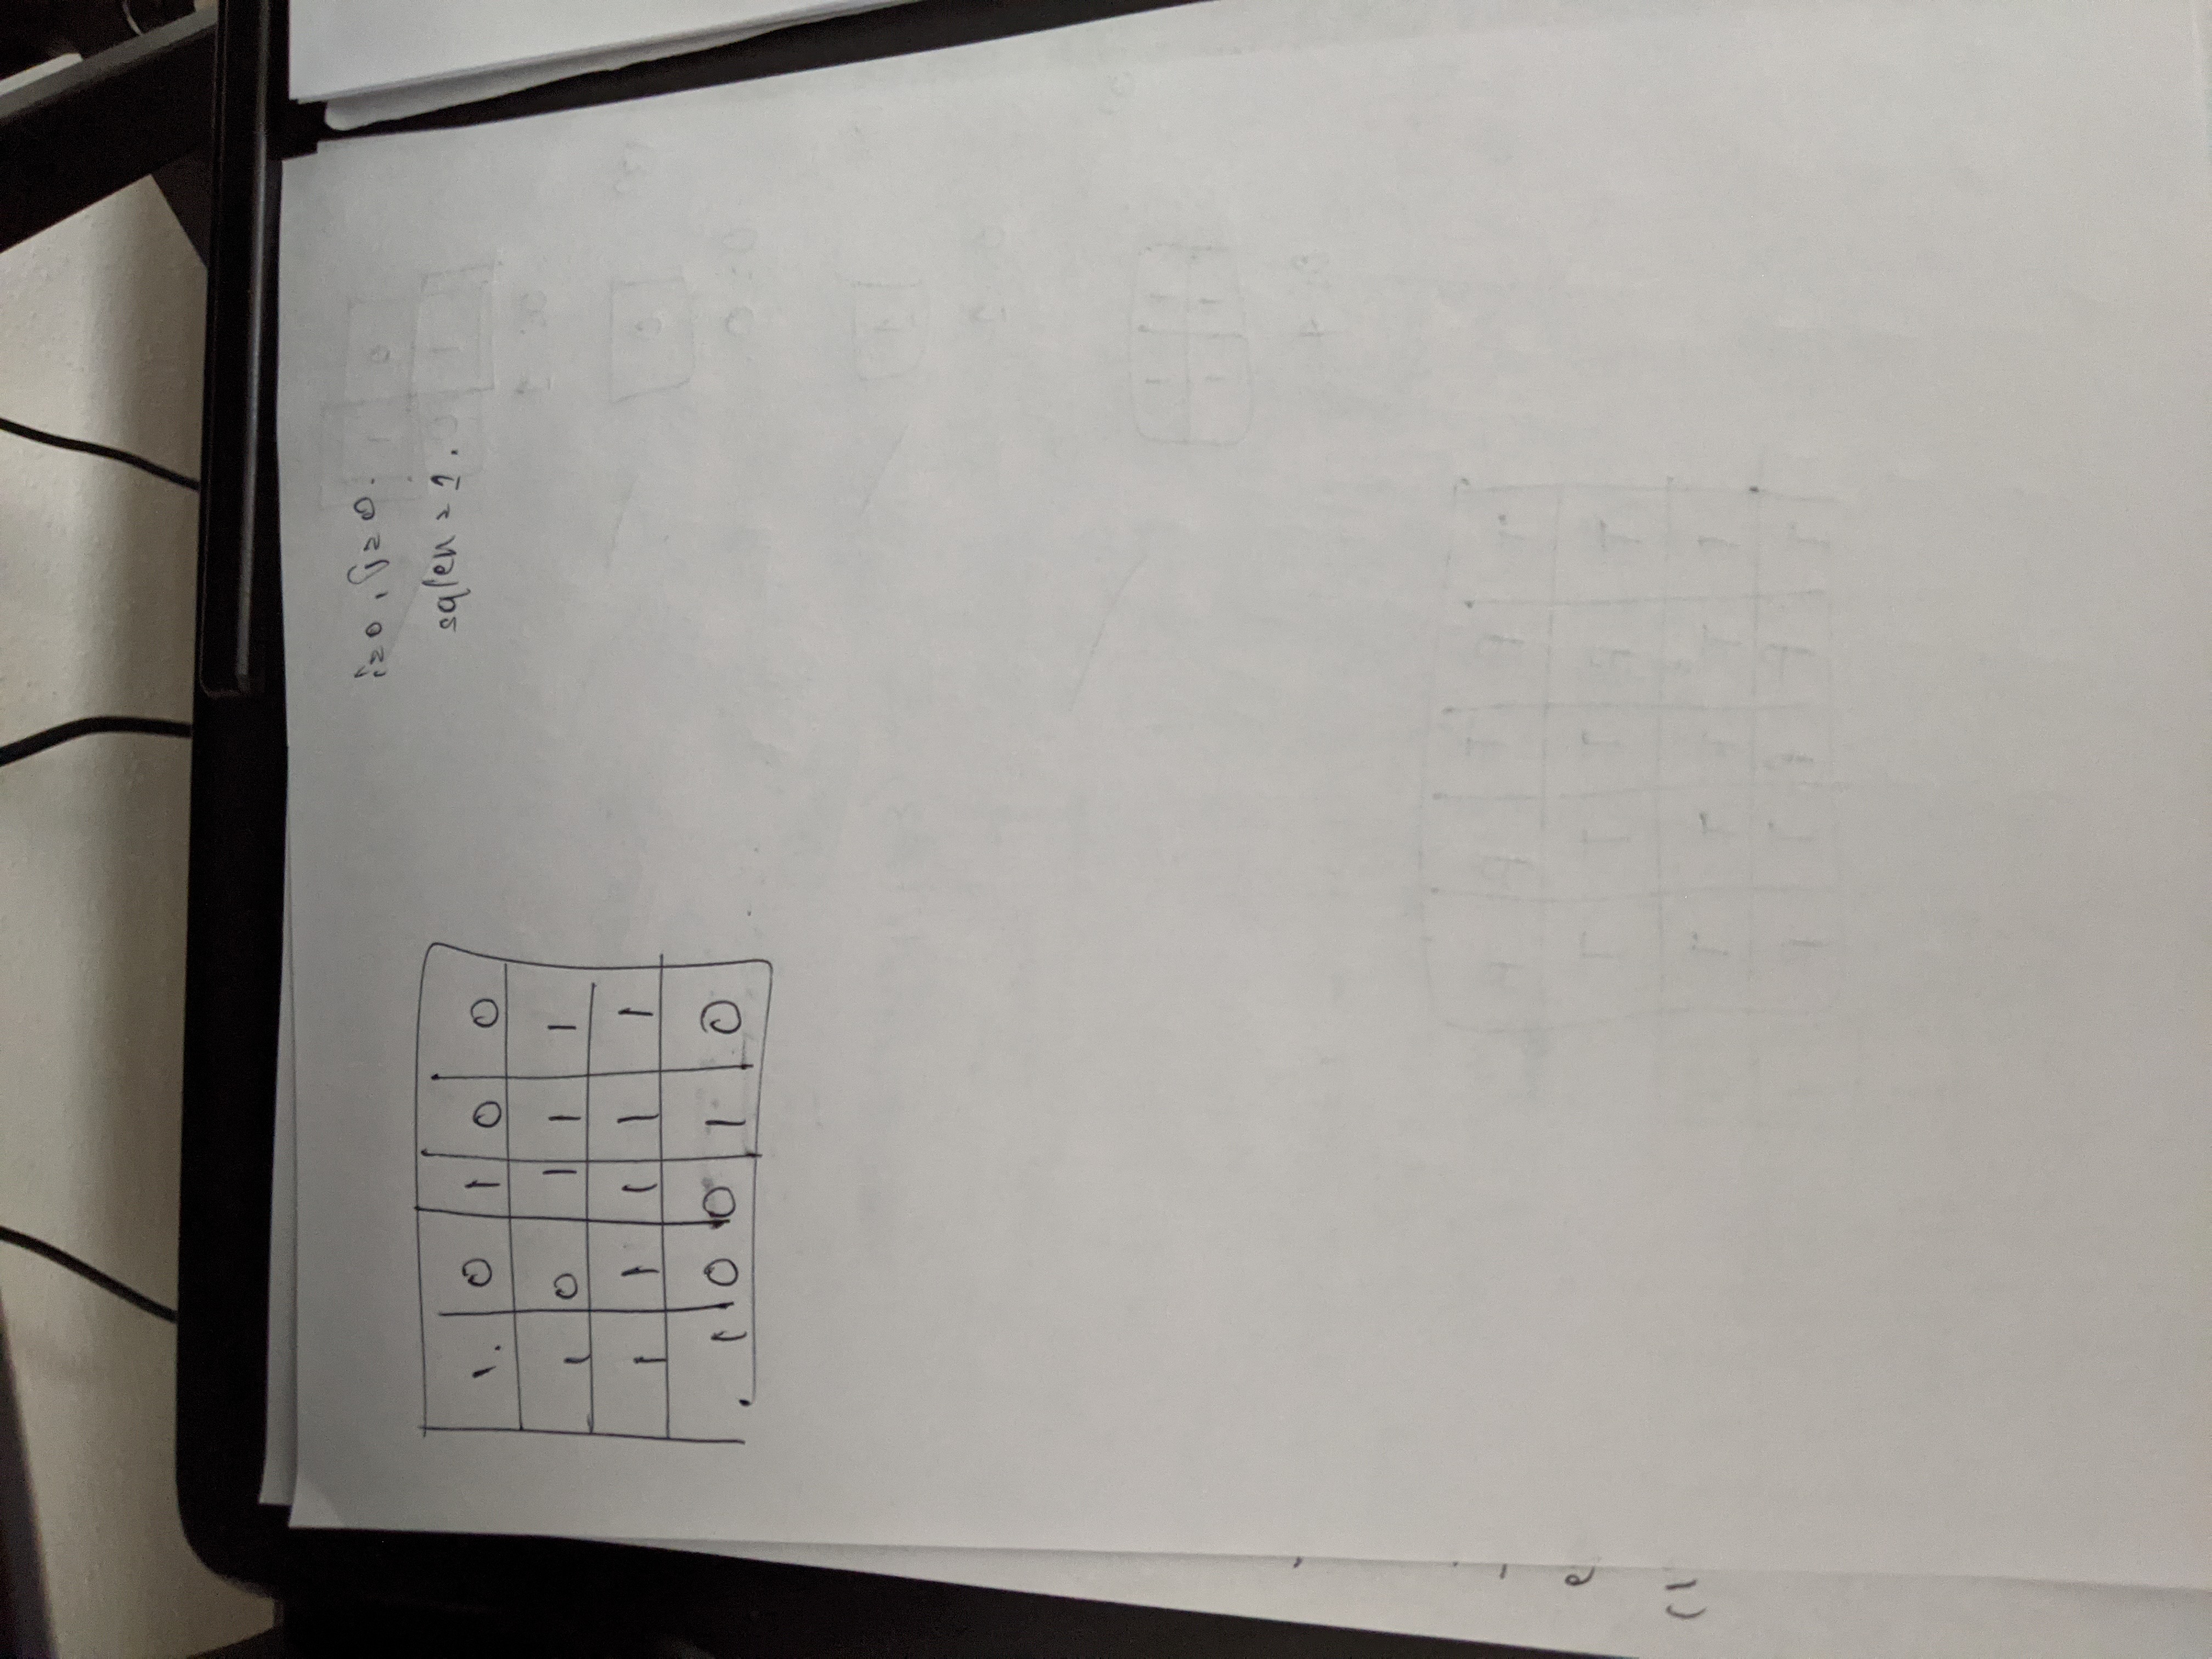 1. 0 1 0 0
1 0 1 1 1
1 1 1 1 1
1 0 0 1 0
i=0, j=0.
sqlen = 1.